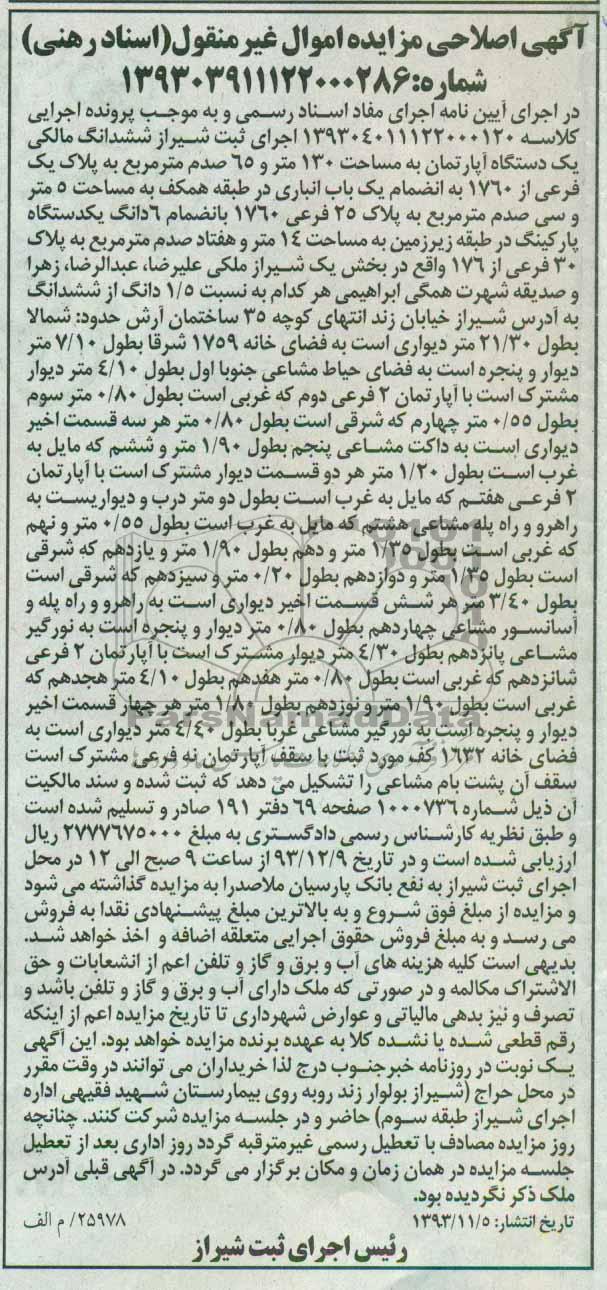 آگهی اصلاحی مزایده اموال غیر منقول(اسناد رهنی)
شماره:۱۳۹۳۰۳۹۱۱۱۲۲۰۰۰۲۸۶
در اجرای آیین نامه اجرای مفاد اسناد رسمی و به موجب پرونده اجرایی
کلاسه ۱۳۹۳۰۴۰۱۱۱۲۲۰۰۰۱۲۰ اجرای ثبت شیراز ششدانگ مالکی
یک دستگاه آپارتمان به مساحت ۱۳۰ متر و ۶۵ صدم مترمربع به پلاک یک
فرعی از ۱۷۶۰ به انضمام یک باب انباری در طبقه همکف به مساحت ۵ متر
و سی صدم مترمربع به پلاک ۲۵ فرعی ۱۷۶۰ بانضمام ۶دانگ یکدستگاه
پارکینگ در طبقه زیرزمین به مساحت ۱۴ متر و هفتاد صدم مترمربع به پلاک
۳۰ فرعی از ۱۷۶ واقع در بخش یک شیراز ملکی علیرضا، عبدالرضا، زهرا
و صدیقه شهرت همگی ابراهیمی هر کدام به نسبت ۱/۵ دانگ از ششدانگ
به آدرس شیراز خیابان زند انتهای کوچه ۳۵ ساختمان آرش حدود: شمالا
بطول ۲۱/۳۰ متر دیواری است به فضای خانه ۱۷۵۹ شرقا بطول ۷/۱۰ متر
دیوار و پنجره است به فضای حیاط مشاعی جنوبا اول بطول ۴/۱۰ متر دیوار
مشترک است با آپارتمان ۲ فرعی دوم که غربی است بطول ۰/۸۰ متر سوم
بطول ۰/۵۵ متر چهارم که شرقی است بطول ۰/۸۰ متر هر سه قسمت اخیر
دیواری است به داکت مشاعی پنجم بطول ۱/۹۰ متر و ششم که مایل به
غرب است بطول ۱/۲۰ متر هر دو قسمت دیوار مشترک است با آپارتمان
۲ فرعی هفتم که مایل به غرب است بطول دو متر درب و دیواریست به
راهرو و راه پله مشاعی هشتم که مایل به غرب است بطول ۰/۵۵ متر و نهم
که غربی است بطول ۱/۳۵ متر و دهم بطول ۱/۹۰ متر و یازدهم که شرقی
است بطول ۱/۳۵ متر و دوازدهم بطول ۰/۲۰ متر و سیزدهم که شرقی است
بطول ۳/۴۰ متر هر شش قسمت اخیر دیواری است به راهرو و راه پله و
آسانسور مشاعی چهاردهم بطول ۰/۸۰ متر دیوار و پنجره است به نورگیر
مشاعی پانزدهم بطول ۴/۳۰ متر دیوار مشترک است با آپارتمان ۲ فرعی
شانزدهم که غربی است بطول ۰/۸۰ متر هفدهم بطول ۴/۱۰ متر هجدهم که
غربی است بطول ۱/۹۰ متر و نوزدهم بطول ۱/۸۰ متر هر چهار قسمت اخیر
دیوار و پنجره است به نورگیر مشاعی غربا بطول ۴/۴۰ متر دیواری است به
فضای خانه ۱۶۳۲ کف مورد ثبت با سقف آپارتمان نه فرعی مشترک است
سقف آن پشت بام مشاعی را تشکیل می دهد که ثبت شده و سند مالکیت
آن ذیل شماره ۱۰۰۰۷۳۶ صفحه ۶۹ دفتر ۱۹۱ صادر و تسلیم شده است
و طبق نظریه کارشناس رسمی دادگستری به مبلغ ۲۷۷۷۶۷۵۰۰۰ ریال
ارزیابی شده است و در تاریخ ۹۳/۱۲/۹ از ساعت ۹ صبح الی ۱۲ در محل
اجرای ثبت شیراز به نفع بانک پارسیان ملاصدرا به مزایده گذاشته می شود
و مزایده از مبلغ فوق شروع و به بالاترین مبلغ پیشنهادی نقدا به فروش
می رسد و به مبلغ فروش حقوق اجرایی متعلقه اضافه و اخذ خواهد شد.
بدیهی است کلیه هزینه های آب و برق و گاز و تلفن اعم از انشعابات و حق
الاشتراک مکالمه و در صورتی که ملک دارای آب و برق و گاز و تلفن باشد و
تصرف و نیز بدهی مالیاتی و عوارض شهرداری تا تاریخ مزایده اعم از اینکه
رقم قطعی شده یا نشده کلا به عهده برنده مزایده خواهد بود. این آگهی
یک نوبت در روزنامه خبرجنوب درج لذا خریداران می توانند در وقت مقرر
در محل حراج (شیراز بولوار زند روبه روی بیمارستان شهید فقیهی اداره
اجرای شیراز طبقه سوم) حاضر و در جلسه مزایده شرکت کنند. چنانچه
روز مزایده مصادف با تعطیل رسمی غیرمترقبه گردد روز اداری بعد از تعطیل
جلسه مزایده در همان زمان و مکان برگزار می گردد. در آگهی قبلی آدرس
ملک ذکر نگردیده بود.
تاریخ انتشار: ۱۳۹۳/۱۱/۵
۲۵۹۷۸/ م الف
رئیس اجرای ثبت شیراز
ParsNamadData